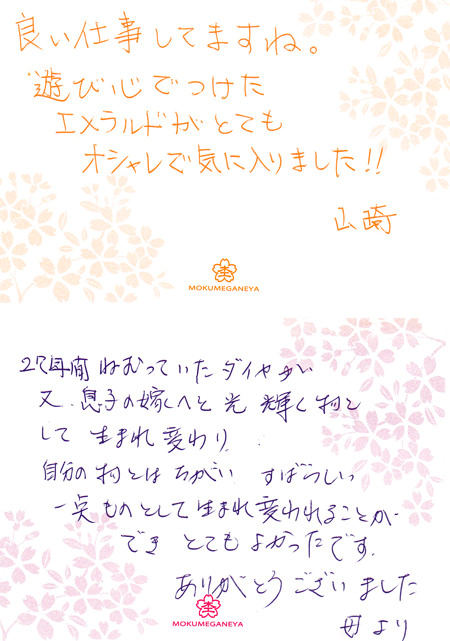 良い仕事してますね。
遊び心でつけた
エメラルドがとても
オシャレで気に入りました!!
山崎
MOKUMEGANEYA
27年間ねむっていたダイヤが
又、息子の嫁へと光輝く物と
して生まれ変わり、
自分の物とはちがい すばらしい
一点ものとして生まれ変われることが
できとてもよかったです。
ありがとうございました
母より
MOKUMEGANEYA